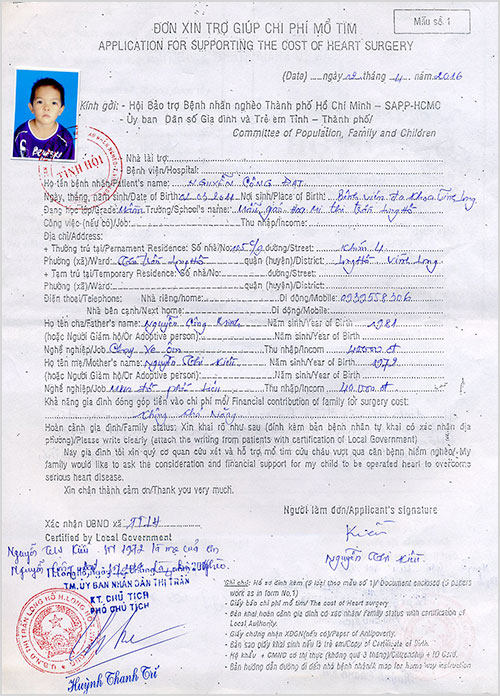 Mẫu số 1
ĐƠN XIN TRỢ GIÚP CHI PHÍ MỔ TIM
APPLICATION FOR SUPPORTING THE COST OF HEART SURGERY
(Date) .....ngày 12 tháng 4 năm 2016
Kính gởi: - Hội Bảo trợ Bệnh nhân nghèo Thành phố Hồ Chí Minh – SAPP-HCMC
- Ủy ban Dân số Gia đình và Trẻ em Tỉnh – Thành phố/
Committee of Population, Family and Children
TỈNH HỘI
Nhà tài trợ
Bệnh viện/Hospital:
Họ tên bệnh nhân/Patient's name: NGUYỄN CÔNG ĐẠT
Ngày, tháng, năm sinh/Date of Birth Nơi sinh/Place of Birth: Bệnh viện Đa Khoa Vĩnh Long
Đang học lớp/Grade: Mầm Trường/School's name: Mầm giáo Hoạ Mi Thị Trấn Long Hồ
Công việc (nếu có)/Job Thu nhập/Income:
Địa chỉ/Address:
+ Thường trú tại/Pernament Residence: Số nhà/No: đường/Street: Khóm 4
Phường (xã)/Ward: Thị Trấn Long Hồ quận (huyện)/District Long Hồ Vĩnh Long
+ Tạm trú tại/Temporary Residence: Số nhà/No: đường/Street:
Phường (xã)/Ward: quận (huyện)/District:
Điện thoại/Telephone: Nhà riêng/home: Di động/Mobile: 0939558306
Nhà bên cạnh/Next home: Di động/Mobile:
Họ tên cha/Father's name: Nguyễn Công Năm sinh/Year of Birth 1981
(hoặc Người Giám hộ/Or Adoptive person): Năm sinh/Year of Birth
Nghề nghiệp/Job Chạy Xe ôm Thu nhập/Income: 40.000 đ
Họ tên mẹ/Mother's name: Nguyễn Thị Kiều Năm sinh/Year of Birth 1972
(hoặc Người Giám hộ/Or Adoptive person): Năm sinh/Year of Birth
Nghề nghiệp/Job Thu nhập/Income: 40.000 đ
Khả năng gia đình đóng góp tiền vào chi phí mổ/ Financial contribution of family for surgery cost:
Không khả Năng
Hoàn cảnh gia đình/Family status: Xin khai rõ như sau (đính kèm bản bệnh nhân tự khai có xác nhận địa
phương)/Please write clearly (attach the writing from patients with certification of Local Government)
Nay gia đình tôi xin quý cơ quan cứu xét và hỗ trợ, mổ tim cứu cháu vượt qua căn bệnh hiểm nghèo./ My
family would like to ask the consideration and financial support for my child to be operated heart to overcome
serious heart disease.
Xin chân thành cảm ơn/Thank you very much.
Người làm đơn/Applicant's signature
Kiều
Nguyễn Thị Kiều
Xác nhận UBND xã TTLH
Certified by Local Government
Nguyễn Thị Kiều. SN 1972 là mẹ của em
TM.ỦY BAN NHÂN DÂN THỊ TRẤN
KT. CHỦ TỊCH
PHÓ CHỦ TỊCH
Huỳnh Thanh Trí
Ghi chú: Hồ sơ đính kèm (5 loại theo mẫu số 1)/ Document enclosed (5 papers
work as in form No,1)
- Giấy báo chi phí mổ tim/ The cost of Heart surgery
- Bản khai hoàn cảnh gia đình có xác nhận/ Family status with certification of
Local Authority.
- Giấy chứng nhận XDGN(nếu có)/Paper of Antipoverty.
- Bản sao giấy khai sinh nếu là trẻ em/Copy of Certificate of Birth.
- Hộ khẩu + CMND có thị thực (không quá 3 tháng)/Citizenship + ID Card.
- Bản hướng dẫn đường đi đến nhà bệnh nhân/A map for home way instruction